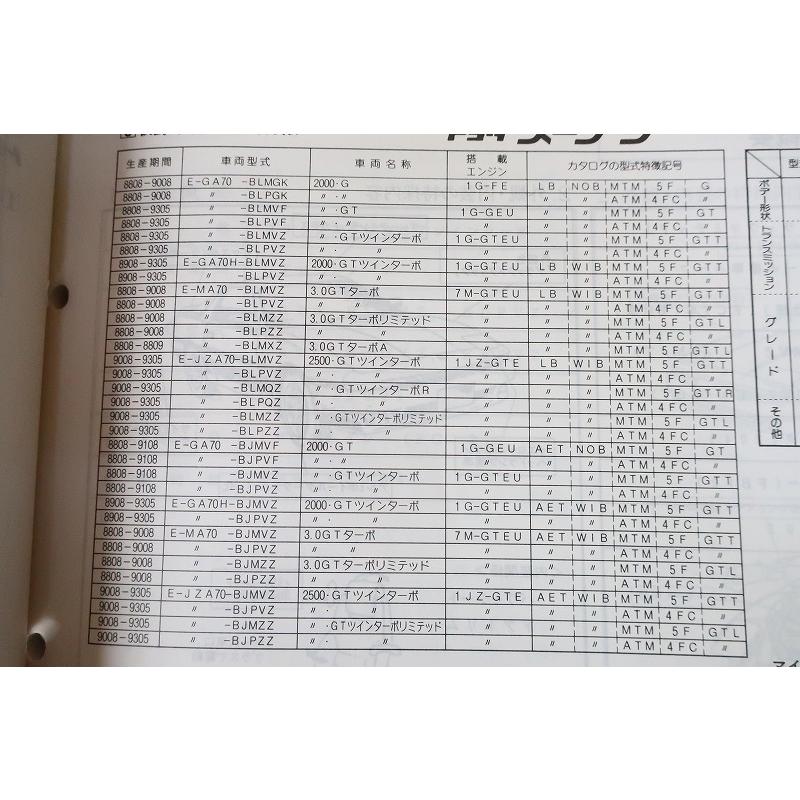 トヨタ スープラ
生産期間 車両型式 車両名称 搭載エンジン カタログの型式特徴記号
8808-9008 E-GA70 -BLMGK 2000・G 1G-FE LB NOB MTM 5F G
8808-9008 〃 -BLPGK 〃・〃 〃 〃 〃 ATM 4FC 〃
8808-9305 〃 -BLMVF 〃・GT 1G-GEU 〃 〃 MTM 5F GT
8808-9305 〃 -BLPVF 〃・〃 〃 〃 〃 ATM 4FC 〃
8808-9305 〃 -BLMVZ 〃・GTツインターボ 1G-GTEU 〃 〃 MTM 5F GTT
8808-9305 〃 -BLPVZ 〃・ 〃 〃 〃 〃 ATM 4FC 〃
8908-9305 E-GA70H-BLMVZ 2000・GTツインターボ 1G-GTEU LB WIB MTM 5F GTT
8908-9305 〃 -BLPVZ 〃・ 〃 〃 〃 〃 ATM 4FC 〃
8808-9008 E-MA70 -BLMVZ 3.0GTターボ 7M-GTEU LB WIB MTM 5F GTT
8808-9008 〃 -BLPVZ 〃 〃 〃 〃 〃 ATM 4FC 〃
8808-9008 〃 -BLMZZ 3.0GTターボリミテッド 〃 〃 〃 MTM 5F GTL
8808-9008 〃 -BLPZZ 〃 〃 〃 〃 〃 ATM 4FC 〃
8808-8809 〃 -BLMXZ 3.0GTターボA 〃 〃 〃 MTM 5F GTTL
9008-9305 E-JZA70-BLMVZ 2500・GTツインターボ 1JZ-GTE LB WIB MTM 5F GTT
9008-9305 〃 -BLPVZ 〃・ 〃 〃 〃 〃 ATM 4FC 〃
9008-9305 〃 -BLMQZ 〃・GTツインターボR 〃 〃 〃 MTM 5F GTTR
9008-9305 〃 -BLPQZ 〃・ 〃 〃 〃 〃 ATM 4FC 〃
9008-9305 〃 -BLMZZ 〃・GTツインターボリミテッド 〃 〃 〃 MTM 5F GTL
9008-9305 〃 -BLPZZ 〃・ 〃 〃 〃 〃 ATM 4FC 〃
8808-9108 E-GA70 -BJMVF 2000・GT 1G-GEU AET NOB MTM 5F GT
8808-9108 〃 -BJPVF 〃・〃 〃 〃 〃 ATM 4FC 〃
8808-9108 〃 -BJMVZ 〃・GTツインターボ 1G-GTEU 〃 〃 MTM 5F GTT
8808-9108 〃 -BJPVZ 〃・ 〃 〃 〃 〃 ATM 4FC 〃
8908-9305 E-GA70H-BJMVZ 2000・GTツインターボ 1G-GTEU AET WIB MTM 5F GTT
8908-9305 〃 -BJPVZ 〃・ 〃 〃 〃 〃 ATM 4FC 〃
8808-9008 E-MA70 -BJMVZ 3.0GTターボ 7M-GTEU AET WIB MTM 5F GTT
8808-9008 〃 -BJPVZ 〃 〃 〃 〃 〃 ATM 4FC 〃
8808-9008 〃 -BJMZZ 3.0GTターボリミテッド 〃 〃 〃 MTM 5F GTL
8808-9008 〃 -BJPZZ 〃 〃 〃 〃 〃 ATM 4FC 〃
9008-9305 E-JZA70-BJMVZ 2500・GTツインターボ 1JZ-GTE AET WIB MTM 5F GTT
9008-9305 〃 -BJPVZ 〃・ 〃 〃 〃 〃 ATM 4FC 〃
9008-9305 〃 -BJMZZ 〃・GTツインターボリミテッド 〃 〃 〃 MTM 5F GTL
9008-9305 〃 -BJPZZ 〃・ 〃 〃 〃 〃 ATM 4FC 〃
型
ボデー形状
トランスミッション
グレード
その他
マイ